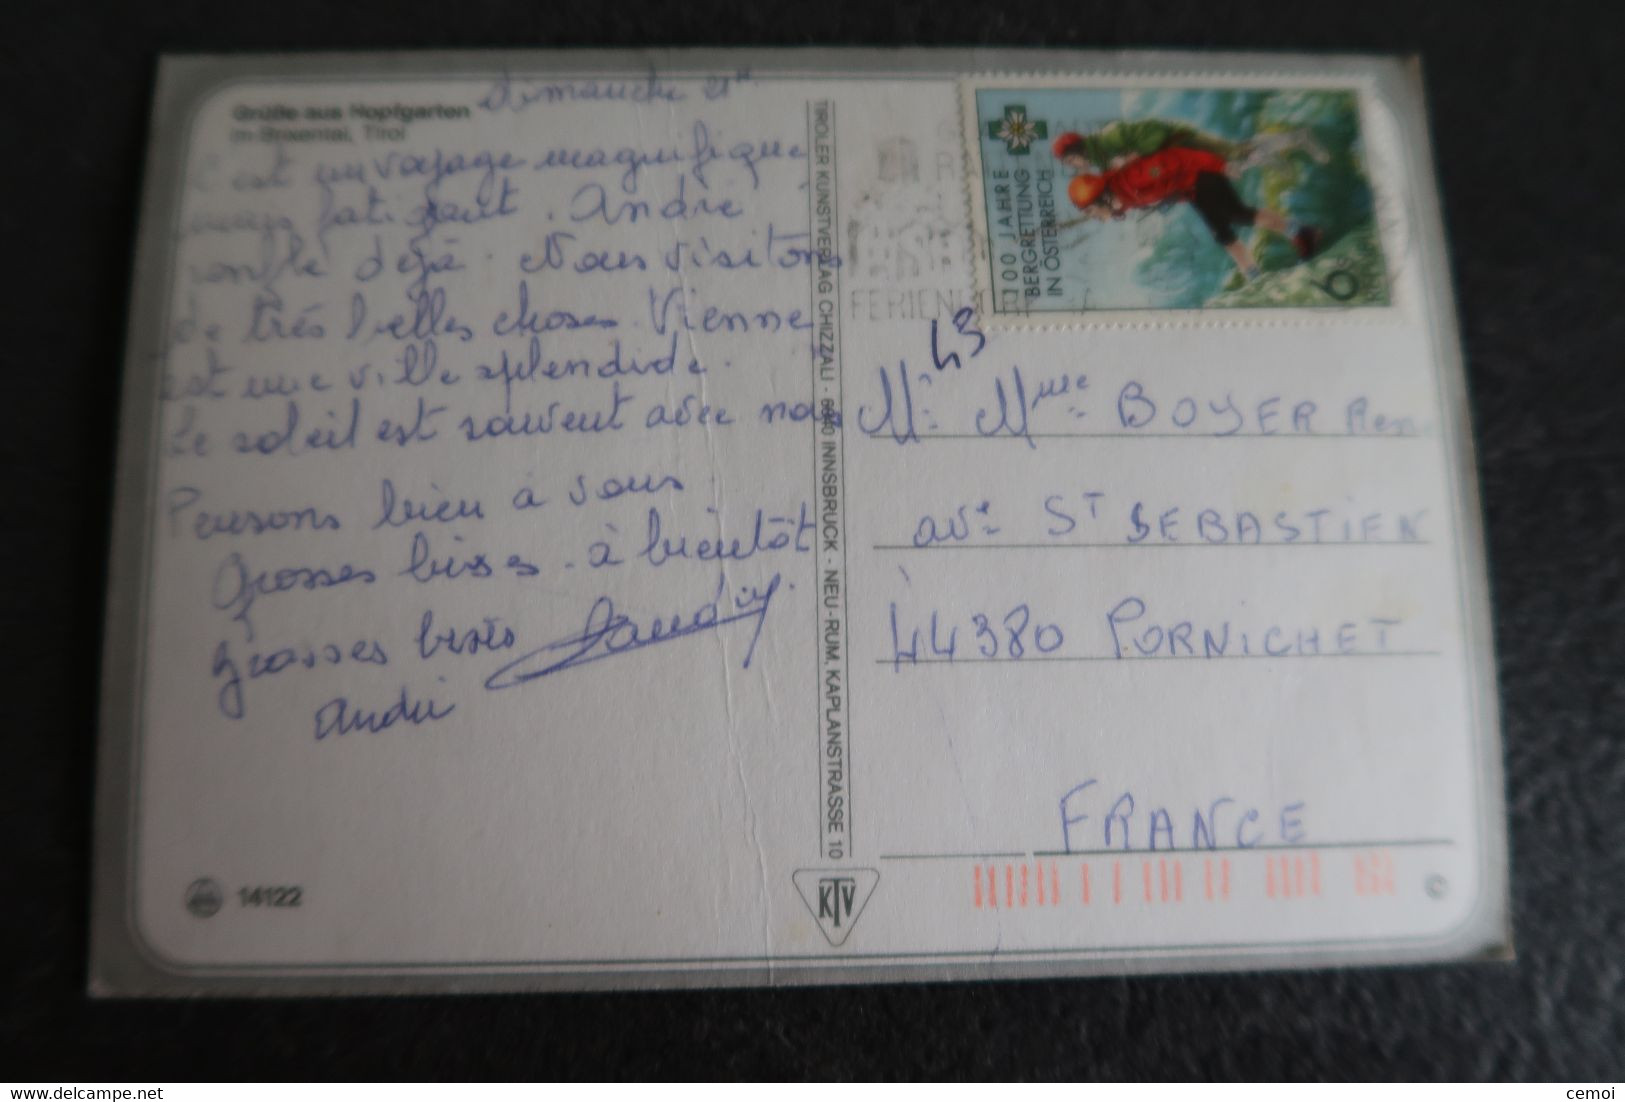 Grüße aus Hopfgarten
im Brixental, Tirol
dimanche 21
C'est un voyage magnifique
mais fatigant. André
ronfle déjà. Nous visitons
de très belles choses. Vienne
est une ville splendide.
Le soleil est souvent avec nous
Pensons bien à vous.
Grosses bises. à bientôt
Grosses bises
André
14122
TIROLER KUNSTVERLAG CHIZZALI - 6040 INNSBRUCK - NEU-RUM, KAPLANSTRASSE 10
KTV
FERIEN
100 JAHRE
BERGRETTUNG
IN ÖSTERREICH
6
43
Mr Mme BOYER
ave ST SEBASTIEN
44380 PORNICHET
FRANCE
©
cemoi